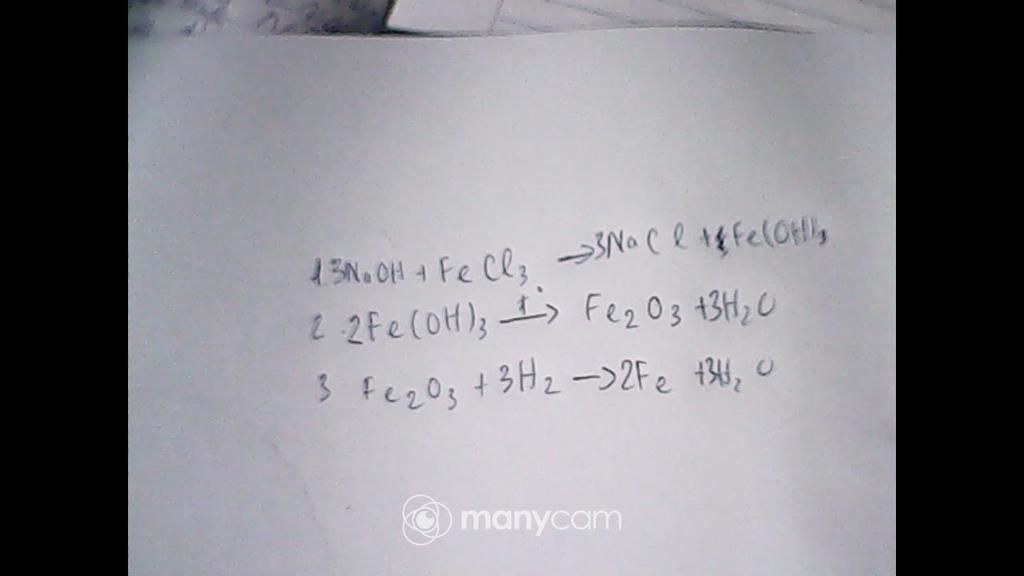 1 3NaOH + FeCl3 → 3NaCl + Fe(OH)3
2 2Fe(OH)3 t°→ Fe2O3 + 3H2O
3 Fe2O3 + 3H2 → 2Fe + 3H2O
manycam